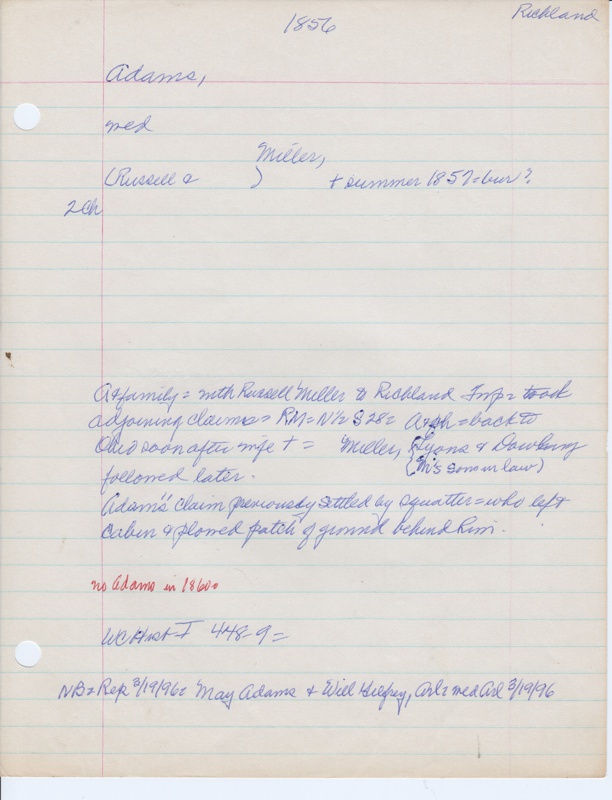 Richland
1856
Adams,
med
Miller,
(Russell & ) + summer 1857 = bur?
2 Ch
A & family = with Russell Miller to Richland Twp = took
adjoining claims = RM = N½ S 28 = A & ch = back to
Ohio soon after wife + = Miller, Lyons & Dowling
(M's sons in law)
followed later.
Adam's claim previously settled by squatter = who left
cabin & plowed patch of ground behind him.
no Adams in 1860 =
WC Hist I 448-9 =
NB = Rep 3/19/96 = May Adams & Will, Arl = med Arl 3/19/96